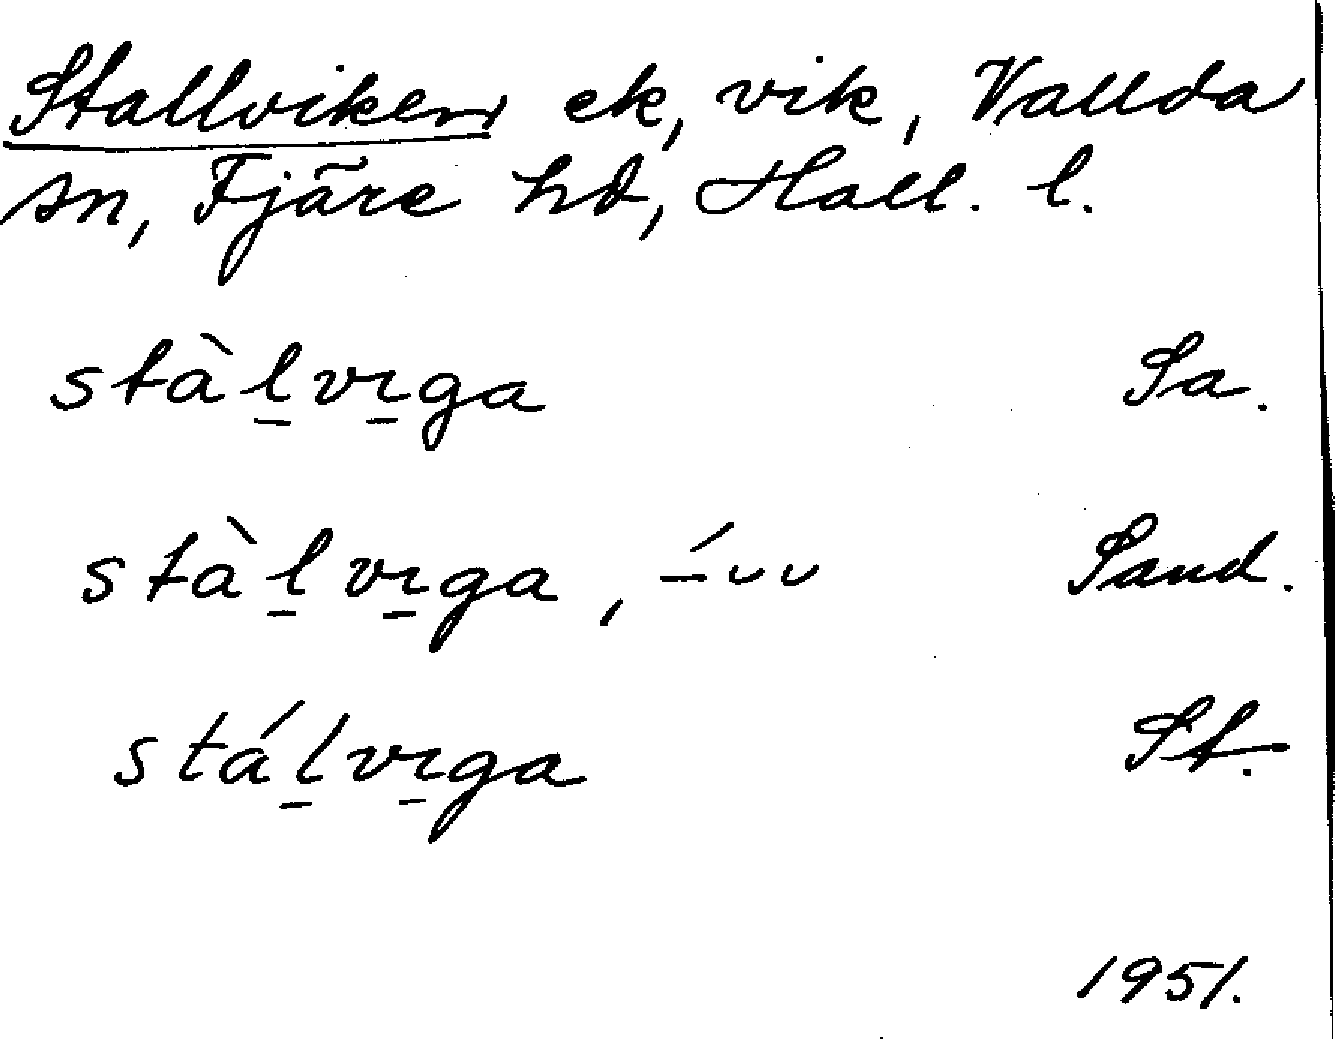 Stallviken ek, vik, Vallda
sn, Fjäre hd, Hall. l.
stàl̲vɪ̲ga Sa.
stàl̲vɪ̲ga, –́ ᴗ ᴗ Sand.
stál̲vɪ̲ga St.
1951.